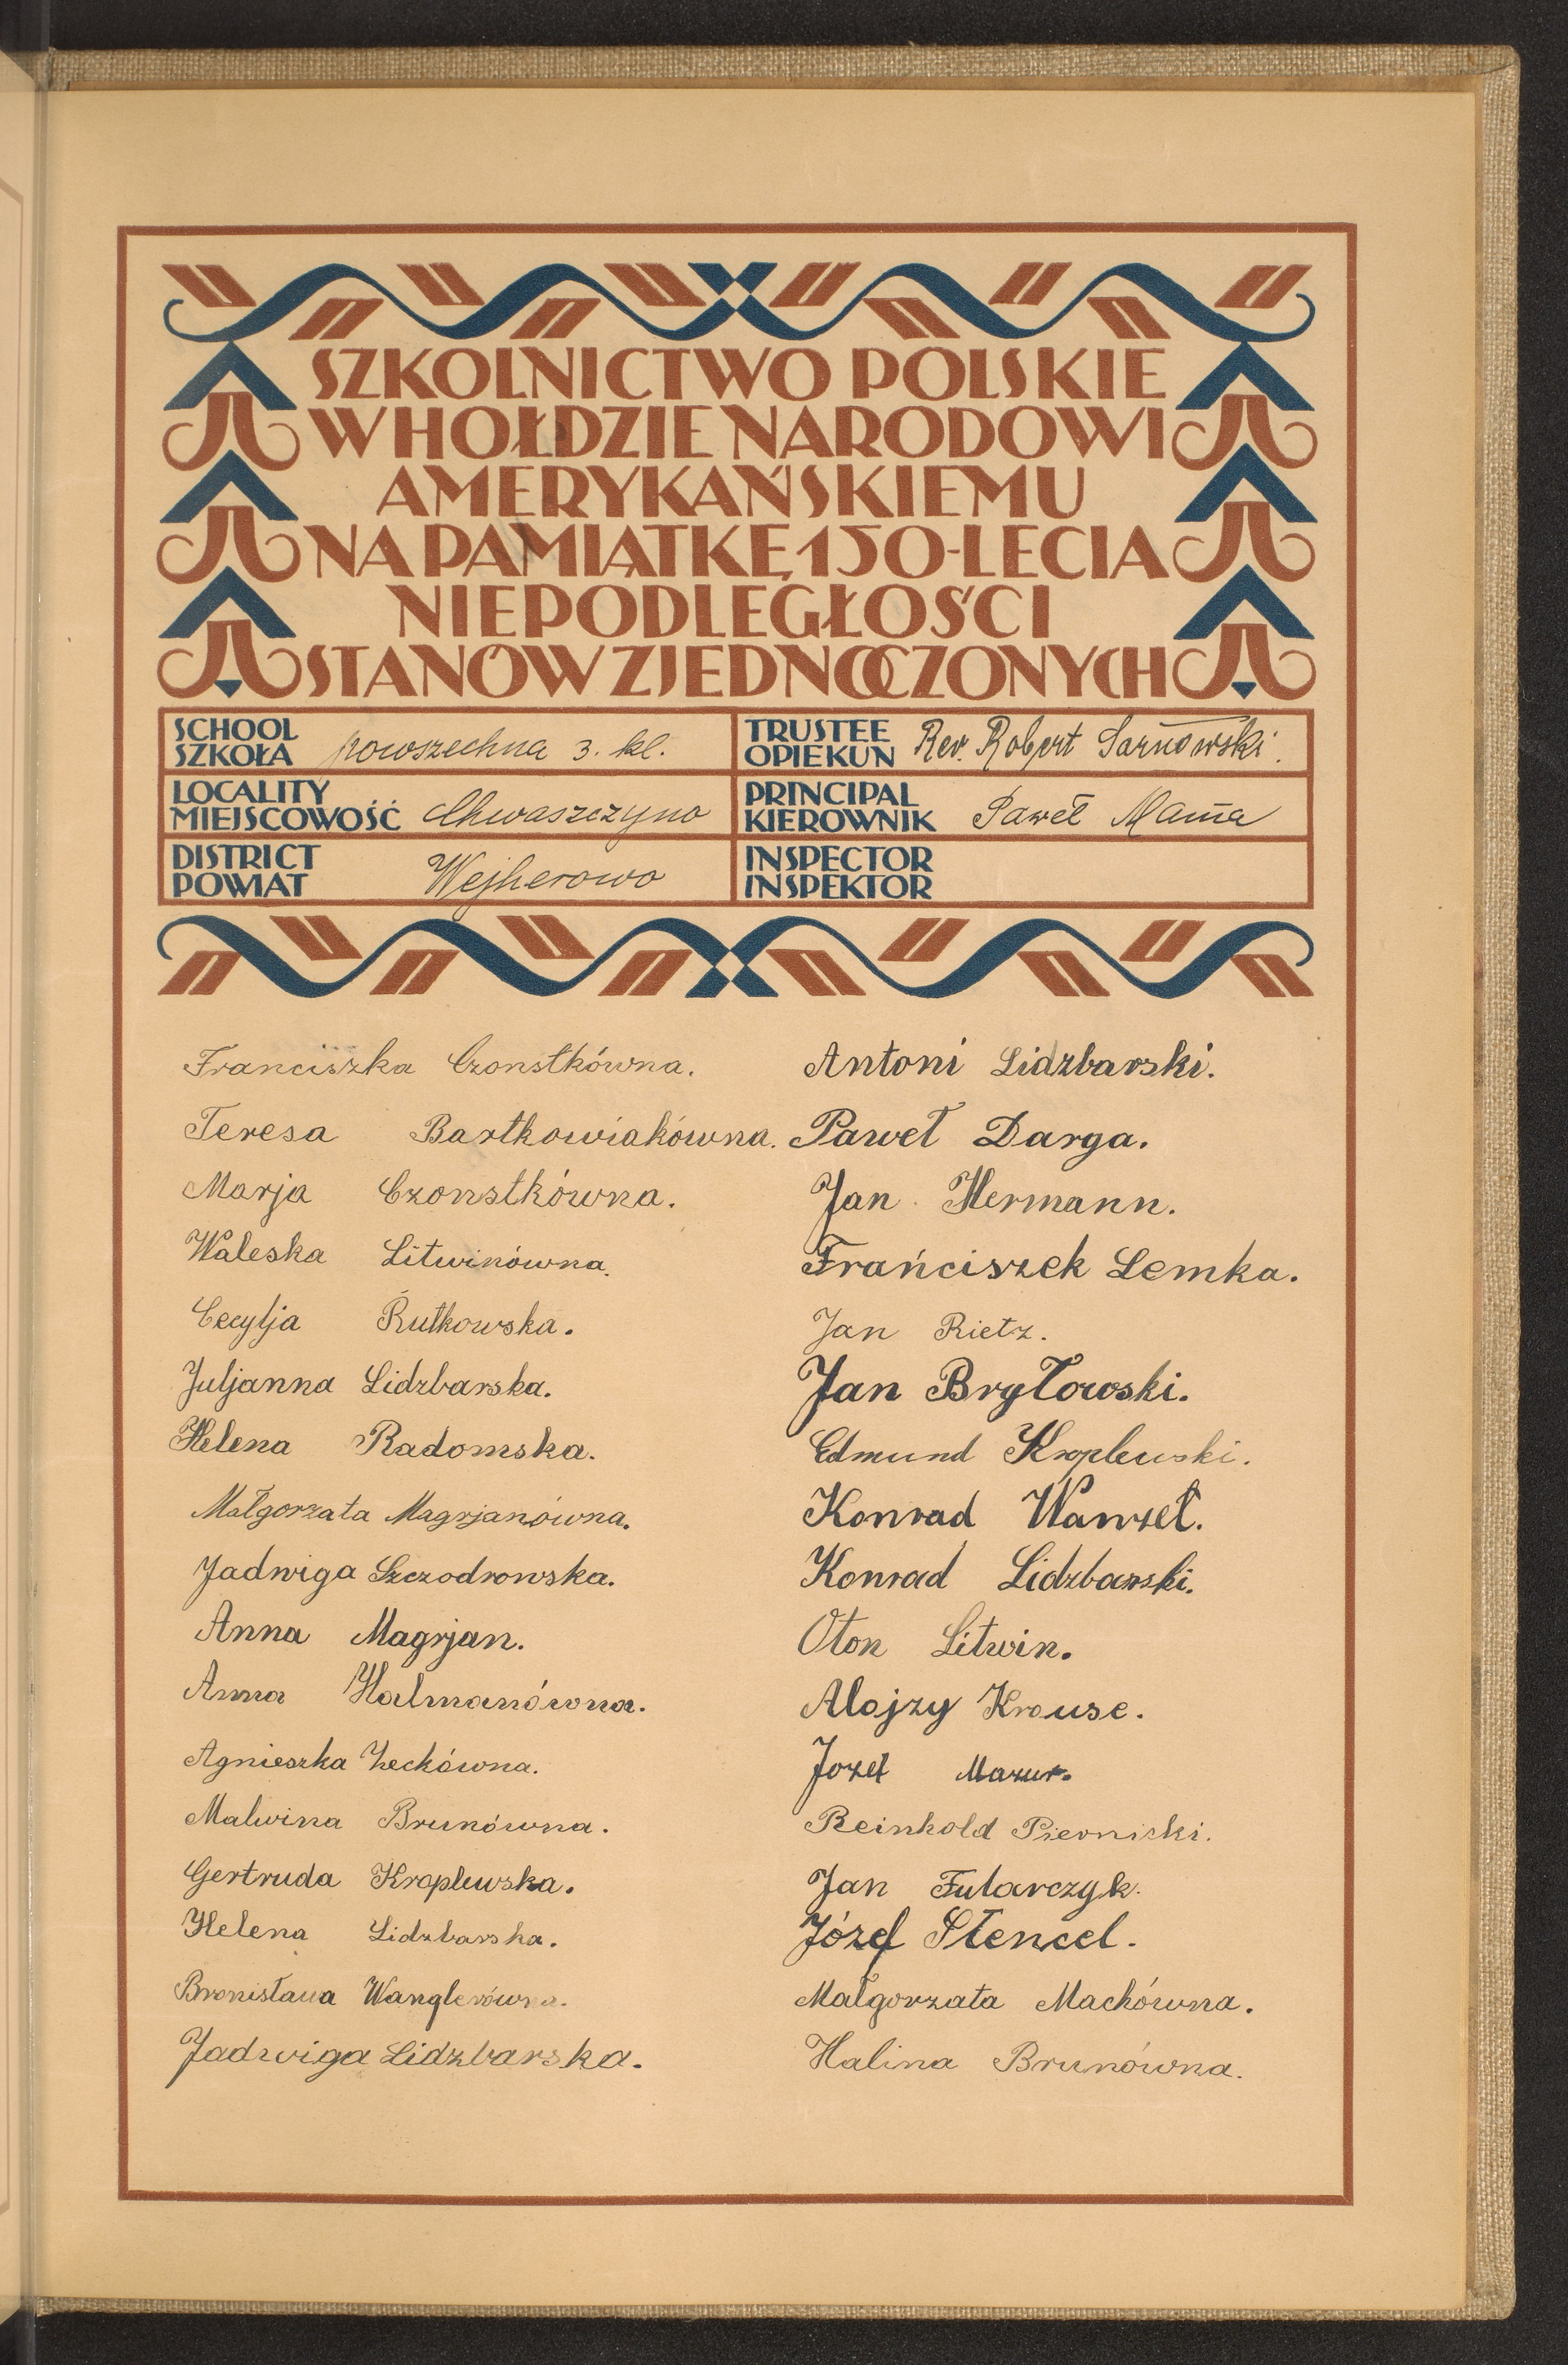 SZKOLNICTWO POLSKIE
W HOŁDZIE NARODOWI
AMERYKAŃSKIEMU
NA PAMIĄTKĘ 150-LECIA
NIEPODLEGŁOŚCI
STANÓW ZJEDNOCZONYCH
SCHOOL
SZKOŁA powszechna 3. kl.
TRUSTEE
OPIEKUN Rev. Robert Sarnowski.
LOCALITY
MIEJSCOWOŚĆ Chwaszczyno
PRINCIPAL
KIEROWNIK Paweł Mama
DISTRICT
POWIAT Wejherowo
INSPECTOR
INSPEKTOR
Franciszka Czonstkówna.
Teresa Bartkowiakówna.
Marja Czonstkówna.
Waleska Litwinówna.
Cecylja Rutkowska.
Juljanna Lidzbarska.
Helena Radomska.
Małgorzata Magrjanówna.
Jadwiga Szczodrowska.
Anna Magrjan.
Anna Halmanówna.
Agnieszka Zeckówna.
Malwina Brunówna.
Gertruda Kroplewska.
Helena Lidzbarska.
Bronisława Wanglerówna.
Jadwiga Lidzbarska.
Antoni Lidzbarski.
Paweł Darga.
Jan Hermann.
Frańciszek Lemka.
Jan Rietz.
Jan Bryłowski.
Edmund Kroplewski.
Konrad Wanzeł.
Konrad Lidzbarski.
Oton Litwin.
Alojzy Krause.
Jozef Mazur.
Reinhold Piernicki.
Jan Fularczyk.
Józef Stencel.
Małgorzata Machówna.
Halina Brunówna.